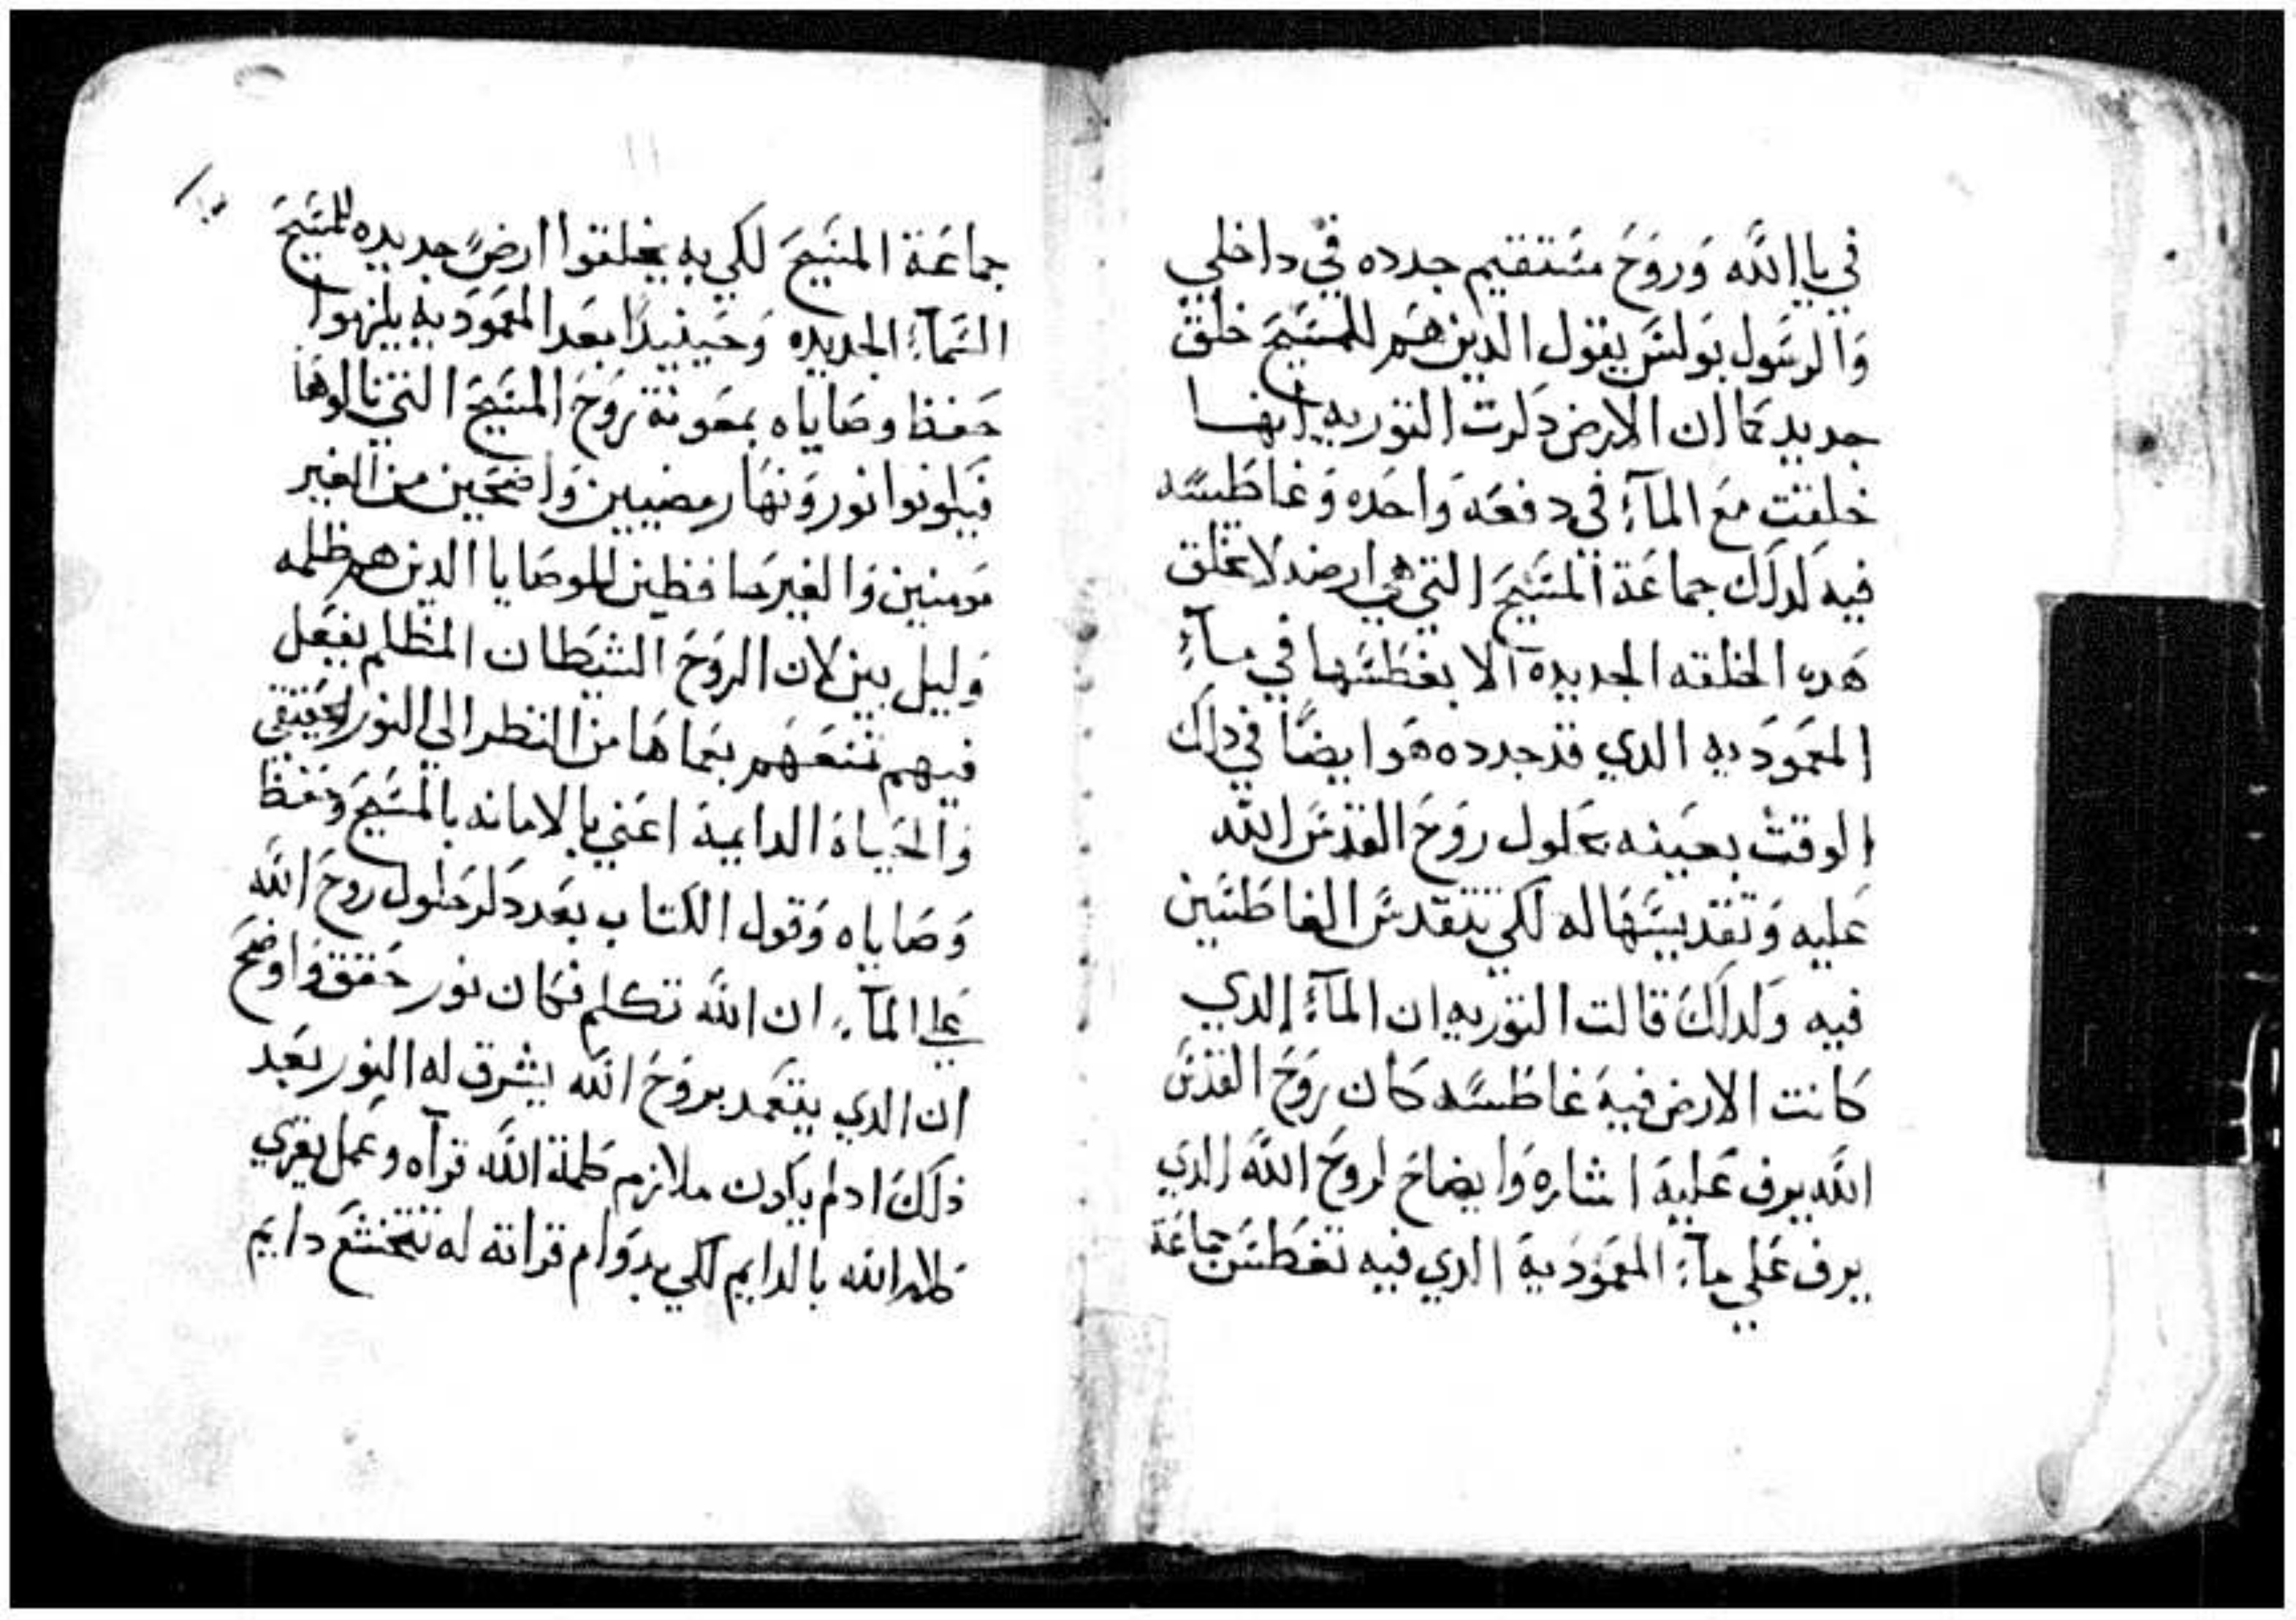 في يا الله وروح مستقيم جدده في داخلي
والرسول بولس يقول الدين هم للمسيح خلق
جديد كما ان الارض دكرت التوريه انها
خلقت مع المآء في دفعه واحده وغاطسه
فيه لدلك جماعة المسيح التي هي ارضه لا تخلق
هده الخلقه الجديدة الا بغطسها في مآء
المعموديه الدي قد جدده هو ايضًا في دلك
الوقت بعينه بحلول روح القدس الله
عليه وتقديسها له لكي يتقدس الغاطسين
فيه ولدلك قالت التوريه ان المآء الدي
كانت الارض فيه غاطسه كان روح القدس
الله يرف عليه اشاره وايضاح لروح الله الدي
يرف علي مآء المعمودية الدي فيه تغطس جماعة
جماعة المسيح لكي به يخلقوا ارض جديده للمسيح
السمآء الجديده وحينيدًا بعد المعموديه يلزهوا
حفظ وصاياه بمعونة روح المسيح التي نالوها
فيكونوا نور ونهار مضيين واضحين من الغير
مومنين والغير حافظين للوصايا الدين هم ظلمه
وليل بين لان الروح الشيطان المظلم يفعل
فيهم تمنعهم بعماها من النظر الي النور الحقيقي
والحياة الدايمة اعني بالامانه بالمسيح وحفظ
وصاياه وقول الكتاب بعد دكر حلول روح الله
علي المآء ان الله تكلم فكان نور حقق واوضح
ان الدي يتعمد بروح الله يشرق له النور بعد
ذلك ادا لم يكون ملازم كلمة الله قرآه وعمل يقري
كلام الله بالدايم لكي بدوام قراته له تتخشع دايم